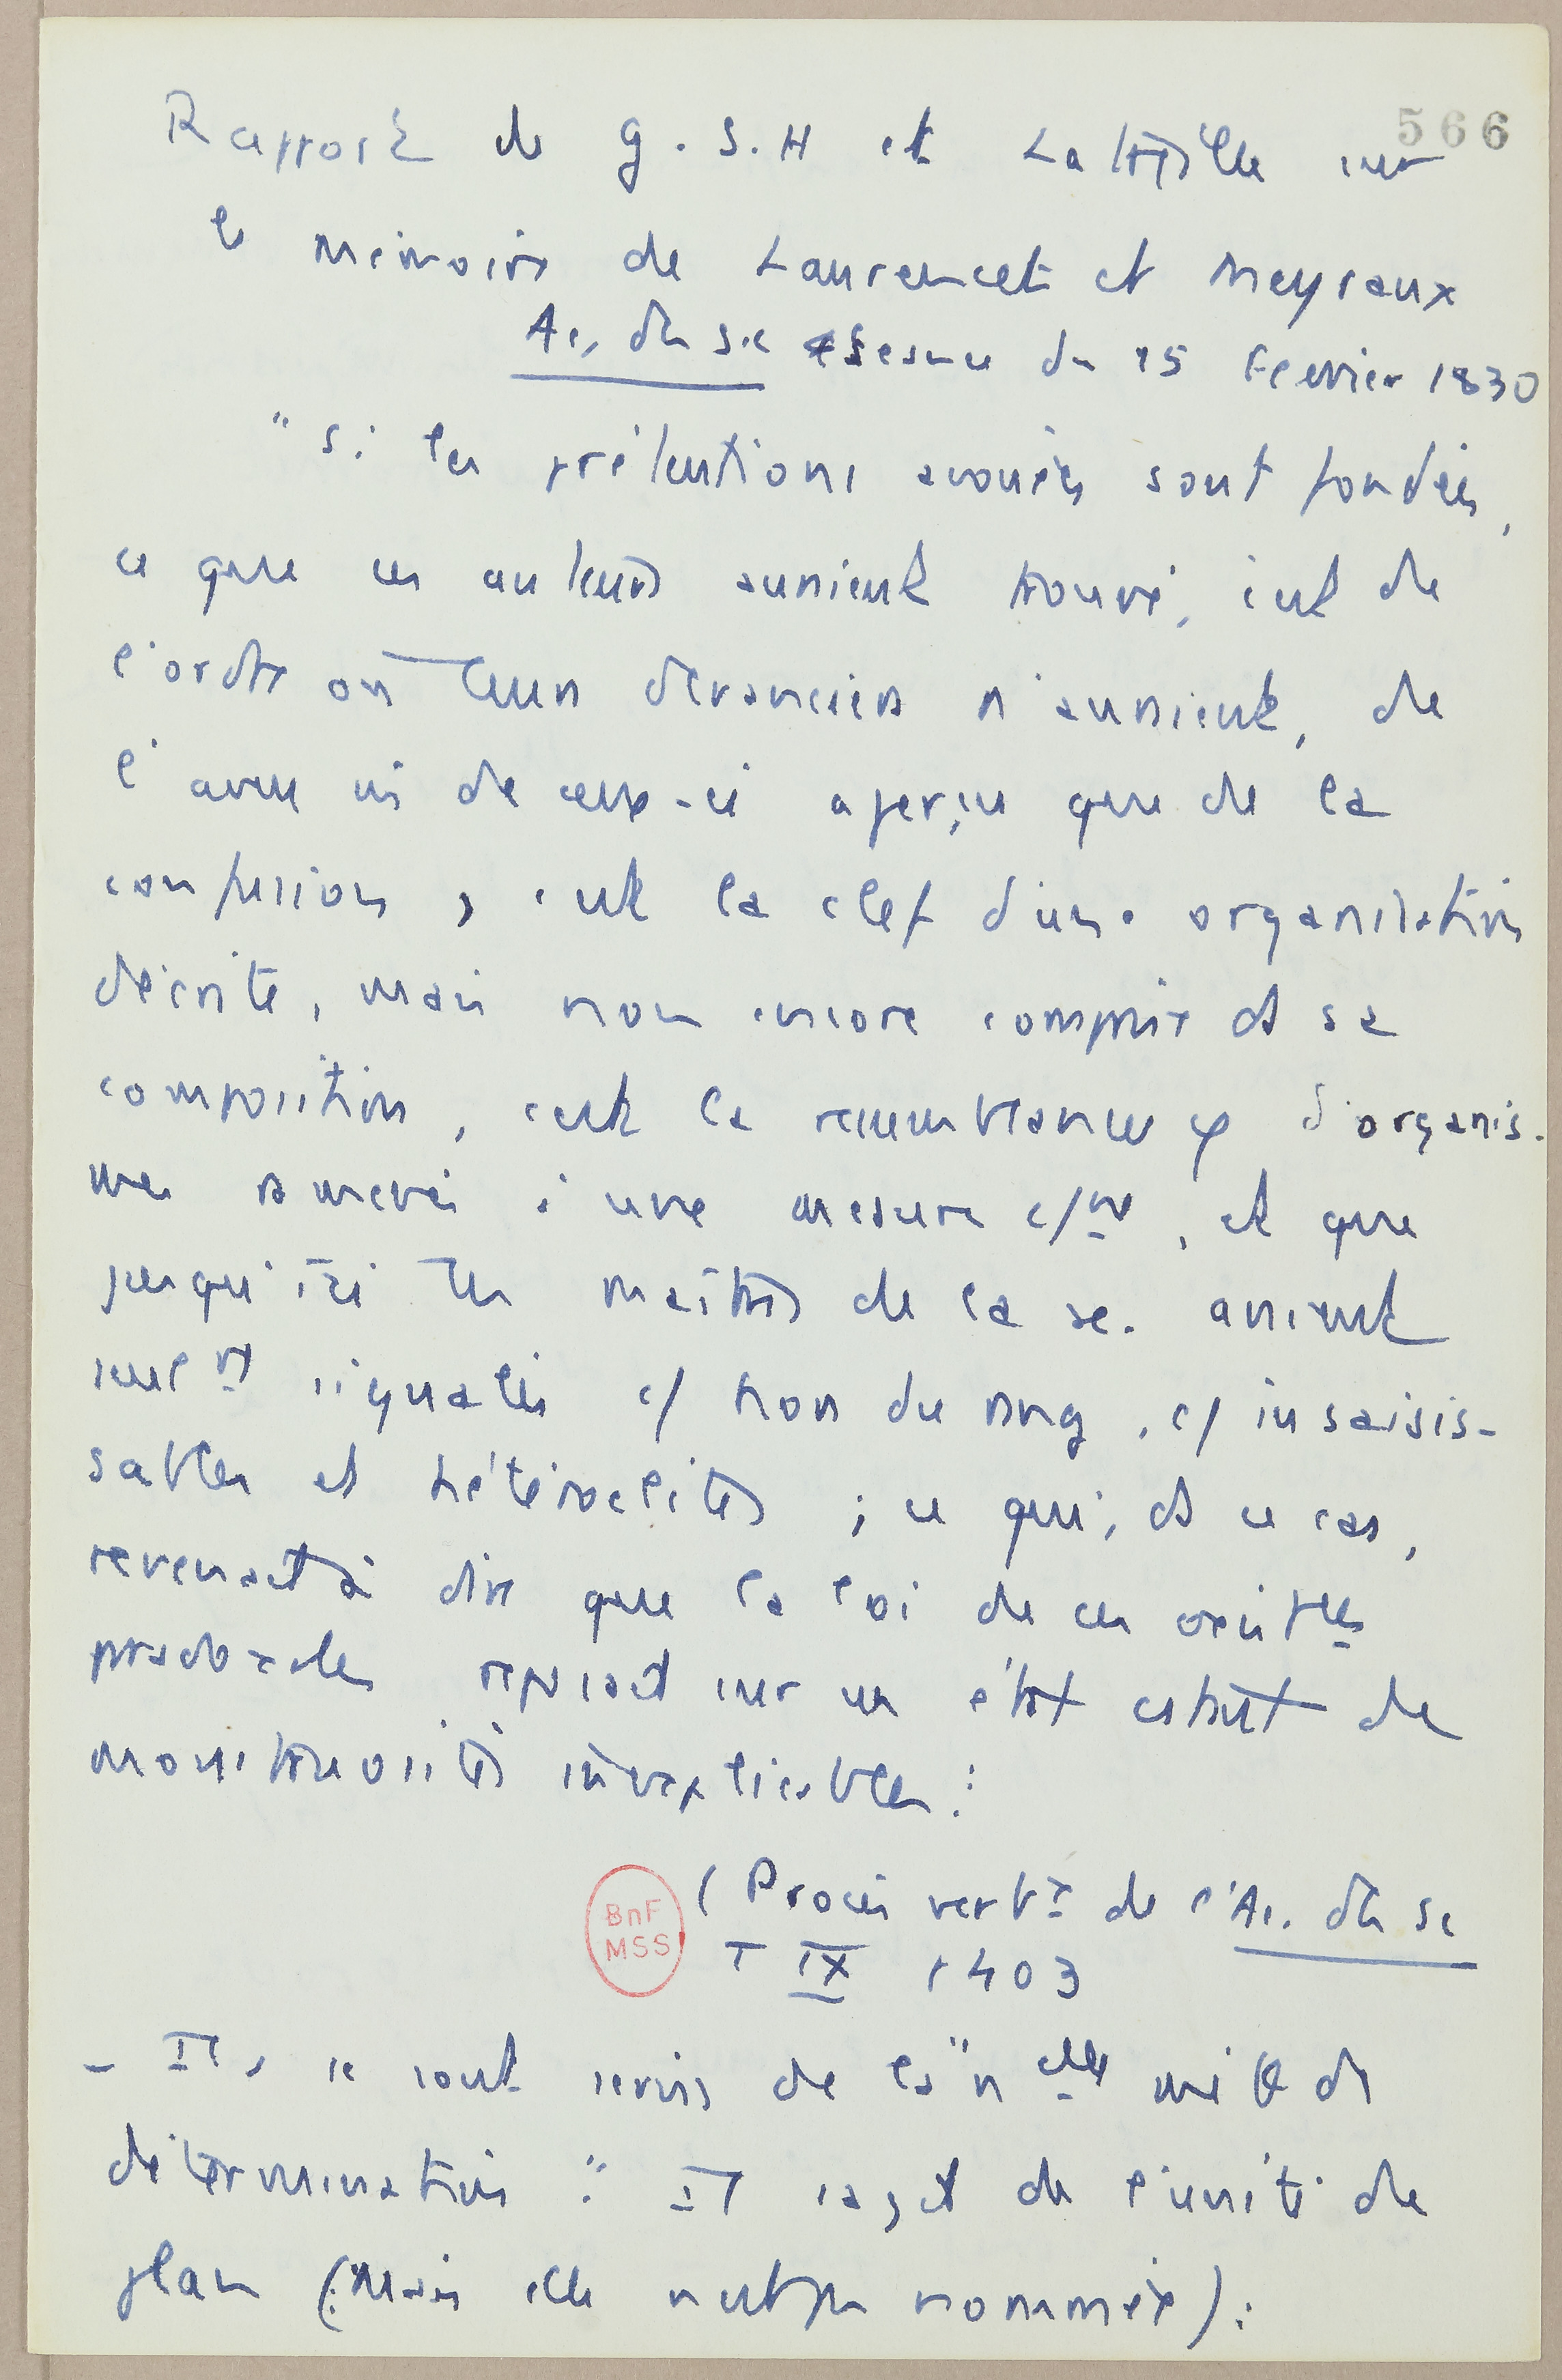 566
Rapport de G. S. H et Latreille sur
le mémoire de Laurencet et Meyraux
Ac. des sc séance du 15 Février 1830
"Si les prétentions avouées sont fondées,
ce que ces auteurs auraient trouvé, c'est de
l'ordre où leurs devanciers n'auraient, de
l'aveu mê de ceux-ci aperçu que de la
confusion, c'est la clef d'une organisation
décrite, mais non encore comprise ds sa
composition, c'est la ressemblance φ d'organis-
mes ramenés à une mesure c/ne, et que
jusqu'ici les maîtres de la sc. avaient
seult signalés c/ hors du rang, c/ insaisis-
sables et hétéroclites ; ce qui, ds ce cas,
revenait à dire que la loi de ces existces
paradoxales reposait sur un état abstrait de
monstruosités inexplicables."
(Procès verbx de l'Ac. des Sc
T IX p 403
BnF
MSS
- Ils se sont servis de la "nelle méth ds
détermination". Il s'agit de l'unité de
plan (Mais elle n'est pas nommée) :